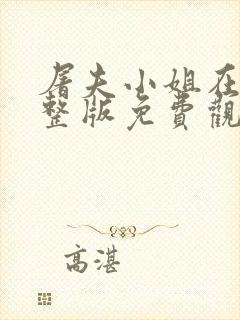 屠夫小姐在
整版免費觀
高湛